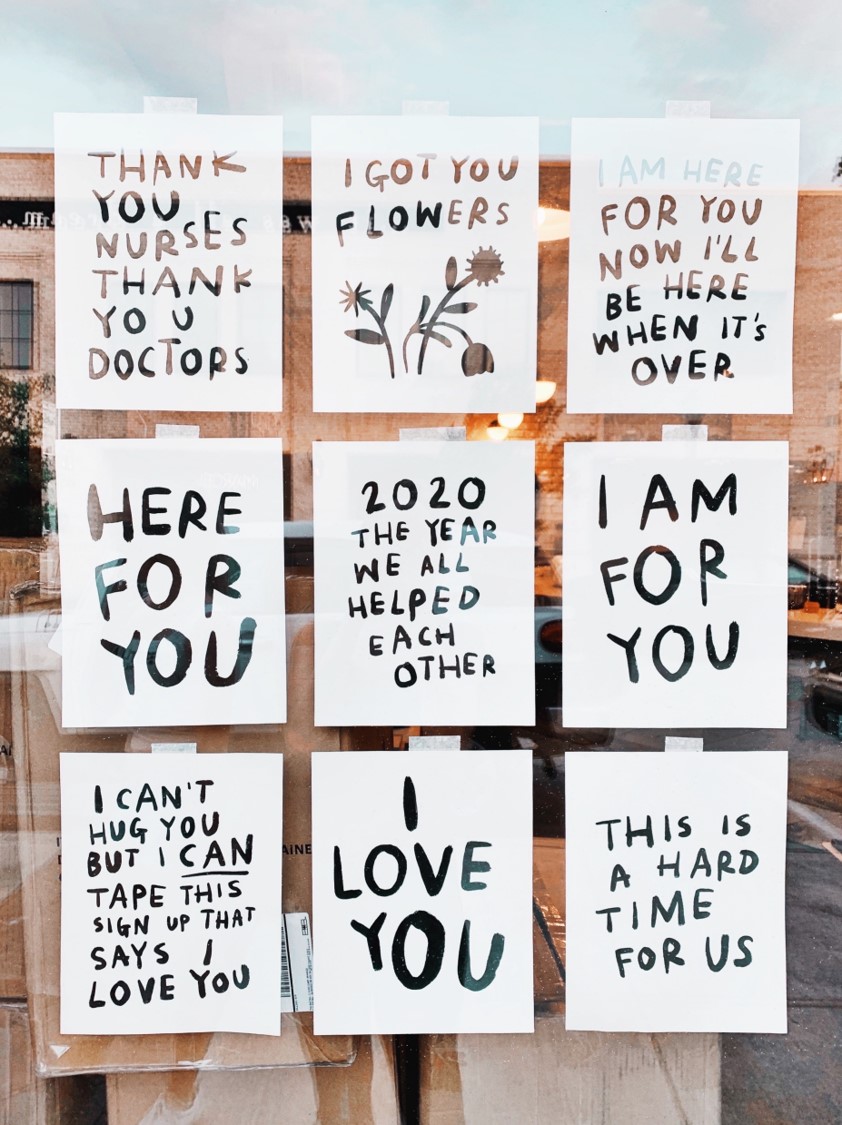 THANK
YOU
NURSES
THANK
YOU
DOCTORS
I GOT YOU
FLOWERS
I AM HERE
FOR YOU
NOW I'LL
BE HERE
WHEN IT'S
OVER
HERE
FOR
YOU
2020
THE YEAR
WE ALL
HELPED
EACH
OTHER
I AM
FOR
YOU
I CAN'T
HUG YOU
BUT I CAN
TAPE THIS
SIGN UP THAT
SAYS I
LOVE YOU
I
LOVE
YOU
THIS IS
A HARD
TIME
FOR US